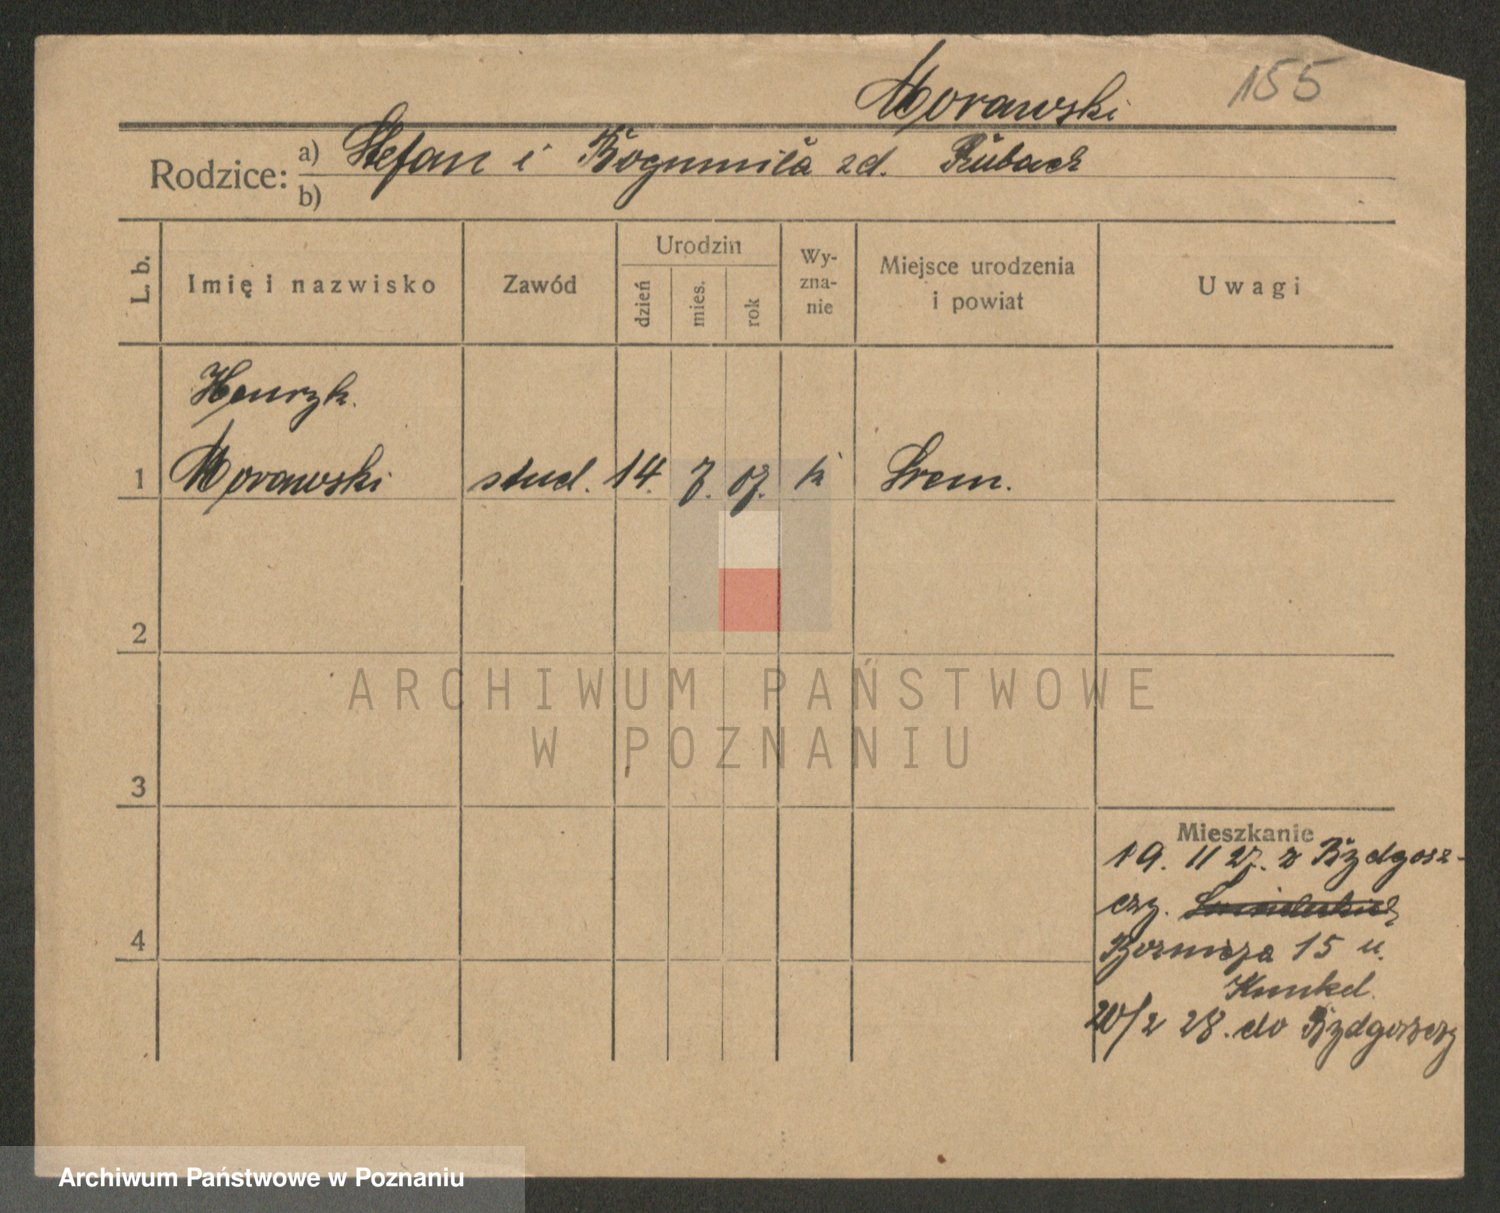 Morawski 155
Rodzice: a) Stefan i Bogumiła zd. Rüback
b)
L. b. Imię i nazwisko Zawód Urodzin dzień mies. rok Wyznanie Miejsce urodzenia i powiat Uwagi
Henryk
1 Morawski stud. 14. 7. 07. k Śrem.
2
ARCHIWUM PAŃSTWOWE
W POZNANIU
3
Mieszkanie
19. 11 27. z Bydgosz-
czy.
4 15 u.
Kunkel.
20/2 28. do Bydgoszczy
Archiwum Państwowe w Poznaniu